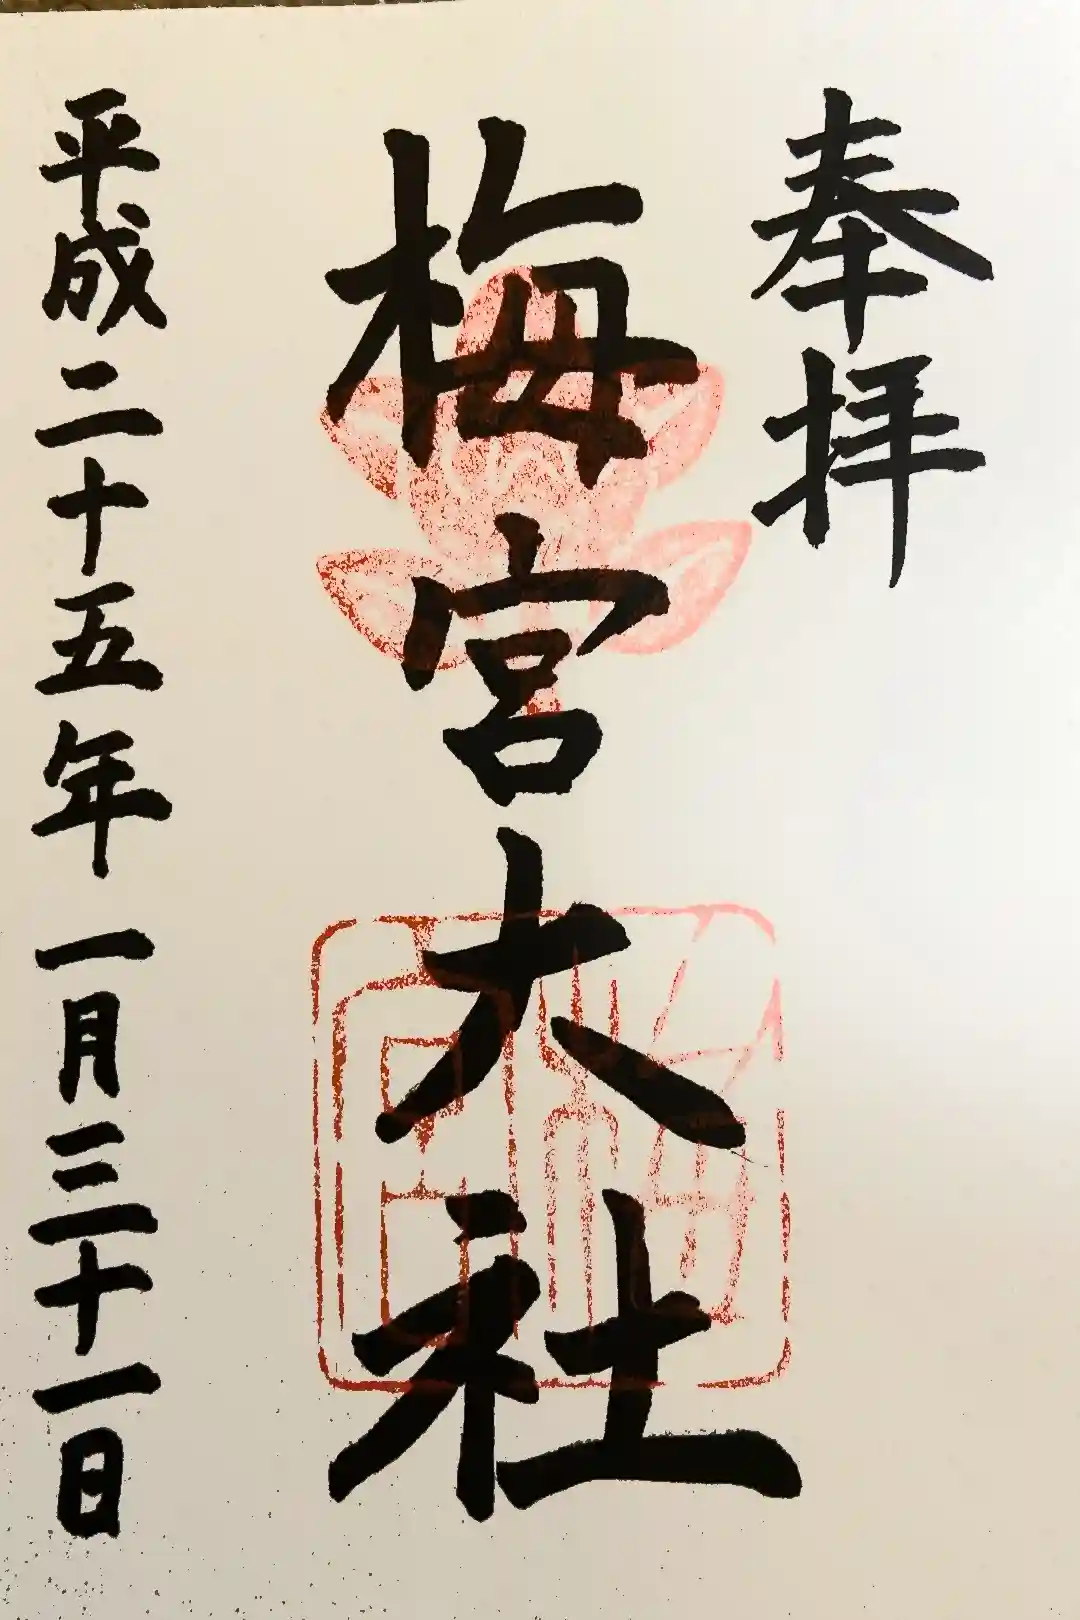 奉拝
梅宮大社
平成二十五年一月三十一日